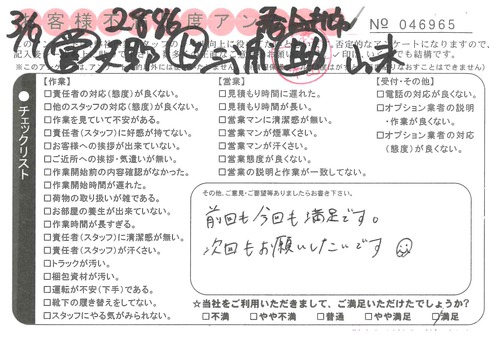 № 046965
3/6 2886
チェックリスト
【作業】
□責任者の対応(態度)が良くない。
□他のスタッフの対応(態度)が良くない。
□作業を見ていて不安がある。
□責任者(スタッフ)に好感が持てない。
□お客様への挨拶が出来ていない。
□ご近所への挨拶・気遣いが無い。
□作業開始前の内容確認がなかった。
□作業開始時間が遅れた。
□荷物の取り扱いが雑である。
□お部屋の養生が出来ていない。
□作業時間が長すぎる。
□責任者(スタッフ)に清潔感が無い。
□責任者(スタッフ)が汗くさい。
□トラックが汚い。
□梱包資材が汚い。
□運転が不安(下手)である。
□靴下の履き替えをしてない。
□スタッフにやる気がみられない。
【営業】
□見積もり時間に遅れた。
□見積もり時間が長い。
□営業マンに清潔感が無い。
□営業マンが煙草くさい。
□営業マンが汗くさい。
□営業態度が良くない。
□営業の説明と作業が一致してない。
【受付・その他】
□電話の対応が良くない。
□オプション業者の説明
・作業が良くない。
□オプション業者の対応
(態度)が良くない。
その他、ご意見・ご要望等ありましたらお書き下さい。
前回も今回も満足です。
次回もお願いしたいです
☆当社をご利用いただきまして、ご満足いただけたでしょうか?
□不満 □やや不満 □普通 □やや満足 □満足